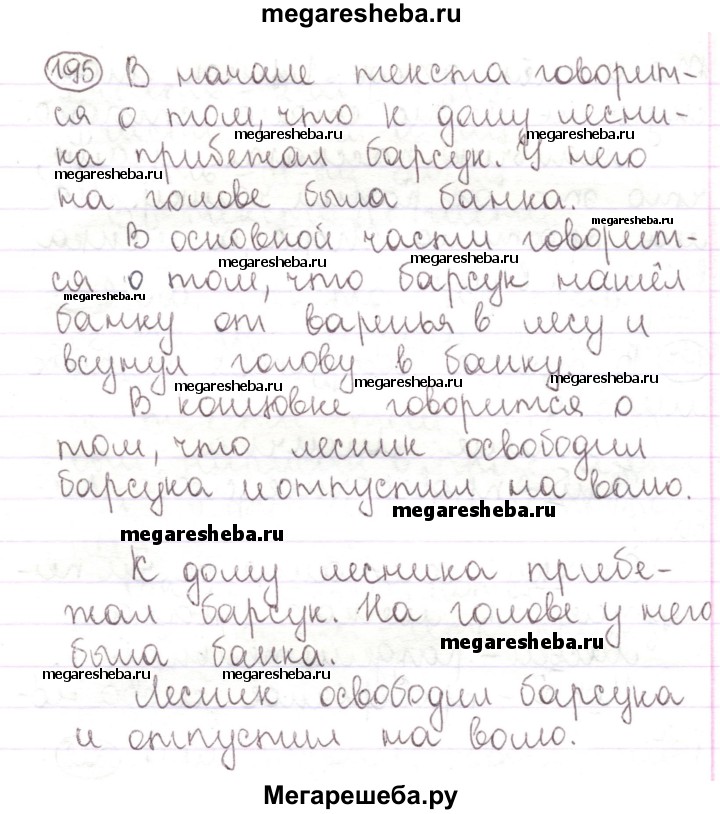 megaresheba.ru
195 В начале текста говорит-
ся о том, что к дому лесни-
megaresheba.ru megaresheba.ru
ка прибежал барсук. У него
megaresheba.ru
на голове была банка.
megaresheba.ru
В основной части говорит-
megaresheba.ru megaresheba.ru
ся о том, что барсук нашёл
megaresheba.ru
банку от варенья в лесу и
всунул голову в банку.
megaresheba.ru megaresheba.ru megaresheba.ru
В концовке говорится о
том, что лесник освободил
барсука и отпустил на волю.
megaresheba.ru
megaresheba.ru
К дому лесника прибе-
жал барсук. На голове у него
была банка.
megaresheba.ru
megaresheba.ru megaresheba.ru
Лесник освободил барсука
и отпустил на волю.
Мегарешеба.ру